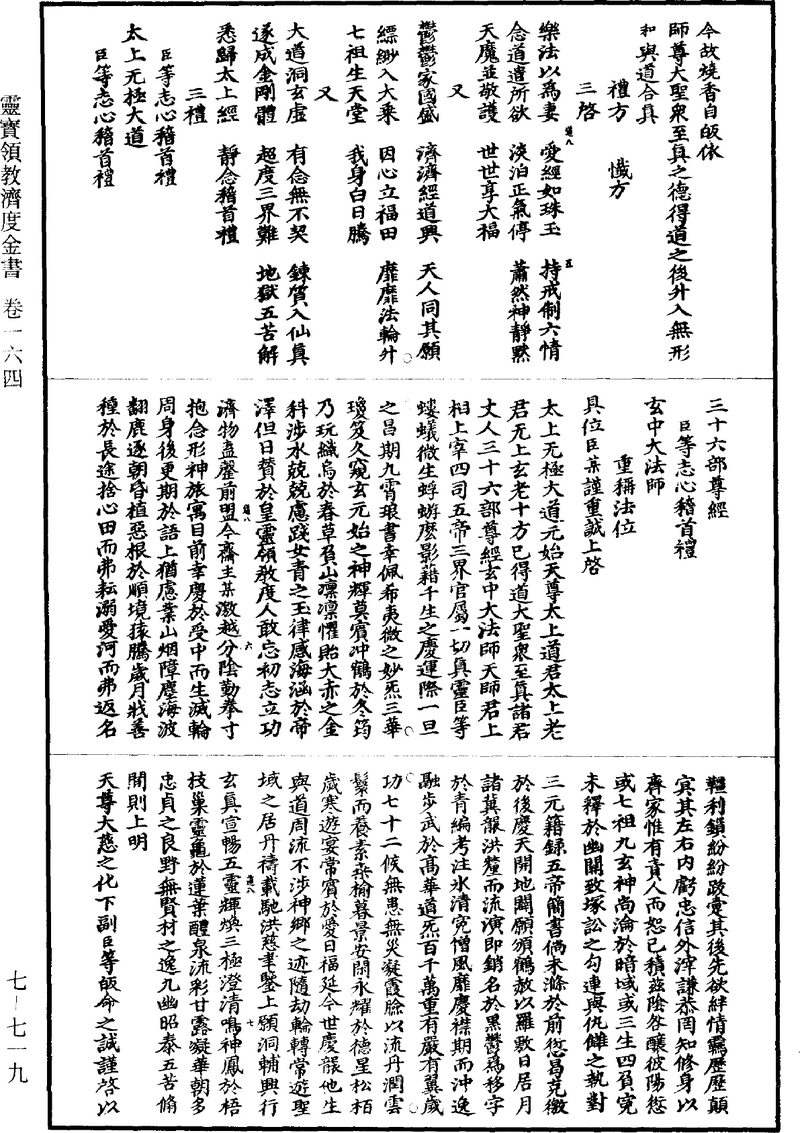 今故燒香自皈依
師尊大聖衆至真之德得道之後升入無形
和與道合真
禮方　懺方
三啓
樂法以爲妻　愛經如珠玉　持戒制六情
念道遣所欲　淡泊正氣停　蕭然神靜默
天魔並敬護　世世享大福
又
鬱鬱家國盛　濟濟經道興　天人同其願
縹緲入大乘　因心立福田　靡靡法輪升
七祖生天堂　我身白日騰
又
大道洞玄虛　有念無不契　鍊質入仙真
遂成金剛體　超度三界難　地獄五苦解
悉歸太上經　靜念稽首禮
三禮
臣等志心稽首禮
太上无極大道
臣等志心稽首禮
三十六部尊經
臣等志心稽首禮
玄中大法師
重稱法位
具位臣某謹重誠上啓
太上无極大道元始天尊太上道君太上老
君无上玄老十方已得道大聖衆至真諸君
丈人三十六部尊經玄中大法師天師君上
相上宰四司五帝三界官屬一切真靈臣等
螻蟻微生蜉蝣麽影藉千生之慶運際一旦
之昌期九霄琅書幸佩希夷微之妙炁三華
瓊笈久窺玄元始之神輝莫賓冲鶴於冬筠
乃玩織烏於春草負山凛凛懼貽大赤之金
科涉水兢兢慮踐女青之玉律感海涵於帝
澤但日贊於皇靈領教度人敢忘初志立功
濟物盍罄前盟今齋主某激越分陰勤拳寸
抱念形神旅寓目前幸慶於受中而生滅輪
周身後更期於語上猶慮業山烟障塵海波
翻鹿逐朝昏植惡根於順境猿騰歲月戕善
種於長途捨心田而弗耘溺愛河而弗返名
韁利鎖紛紛跋疐其後先欲絆情羈歷歷顛
㝠其左右内虧忠信外滓謙恭罔知修身以
齊家惟有責人而恕已積兹陰咎釀彼陽愆
或七祖九玄神尚淪於暗域或三生四負寃
未釋於幽關致塚訟之勾連與仇讎之執對
三元籍録五帝簡書倘未滌於前愆曷克徼
於後慶天開地闢願頒鶴赦以羅敷日居月
諸冀霈洪釐而流演即銷名於黑簿爲移字
於青編考注冰清寃憎風靡慶襟期而沖逸
融步武於高華道炁百千萬重有嚴有翼歲
功七十二候無患無災凝霞臉以流丹潤雲
鬢而養素桑榆暮景安閒永耀於德星松栢
歲寒遊宴常賓於愛日福延今世慶襲他生
與道周流不涉神鄉之迹隨劫輪轉常遊聖
域之居丹禱載馳洪慈聿鑒上願洞輔興行
玄真宣暢五靈輝煥三極澄清鳴神鳳於梧
枝巢靈龜於蓮葉醴泉流彩甘露凝華朝多
忠貞之良野無賢材之逸九幽昭泰五苦脩
閒則上明
天尊大慈之化下副臣等皈命之誠謹啓以
靈寶領教濟度金書　卷一六四
七－七一九